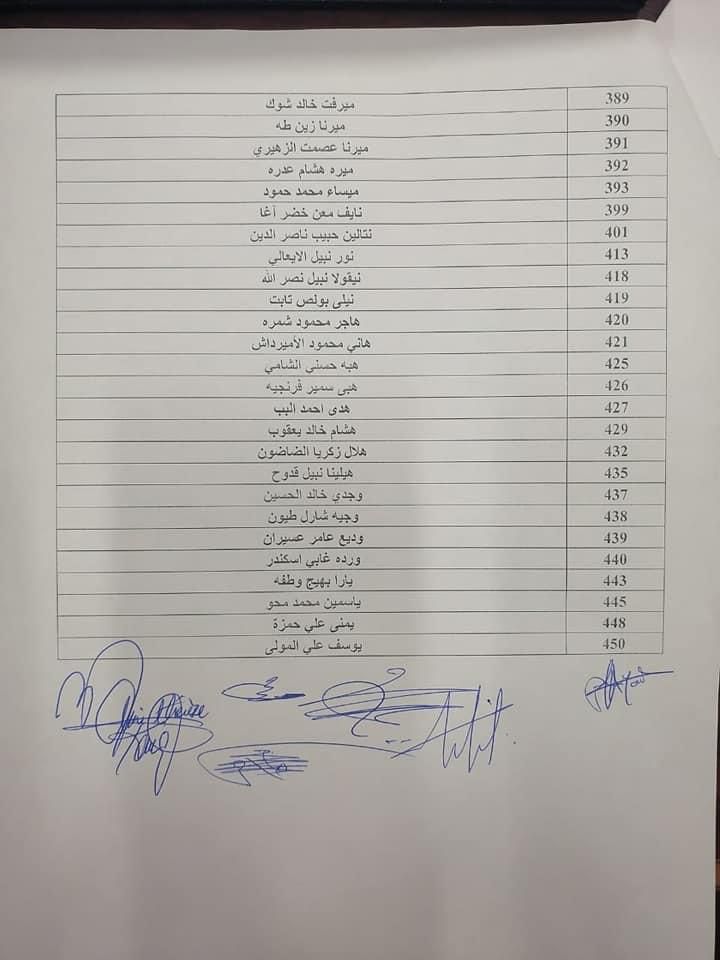 389 ميرفت خالد شوك
390 ميرنا زين طه
391 ميرنا عصمت الزهيري
392 ميره هشام عدره
393 ميساء محمد حمود
399 نايف معن خضر آغا
401 نتالين حبيب ناصر الدين
413 نور نبيل الايعالي
418 نيقولا نبيل نصر الله
419 نيلي بولص تابت
420 هاجر محمود شمره
421 هاني محمود الأميرداش
425 هبه حسني الشامي
426 هبى سمير فرنجيه
427 هدى احمد البب
429 هشام خالد يعقوب
432 هلال زكريا الضاضون
435 هيلينا نبيل قدوح
437 وجدي خالد الحسين
438 وجيه شارل طيون
439 وديع عامر عسيران
440 ورده غابي اسكندر
443 يارا بهيج وطفه
445 ياسمين محمد محو
448 يمنى علي حمزة
450 يوسف علي المولى